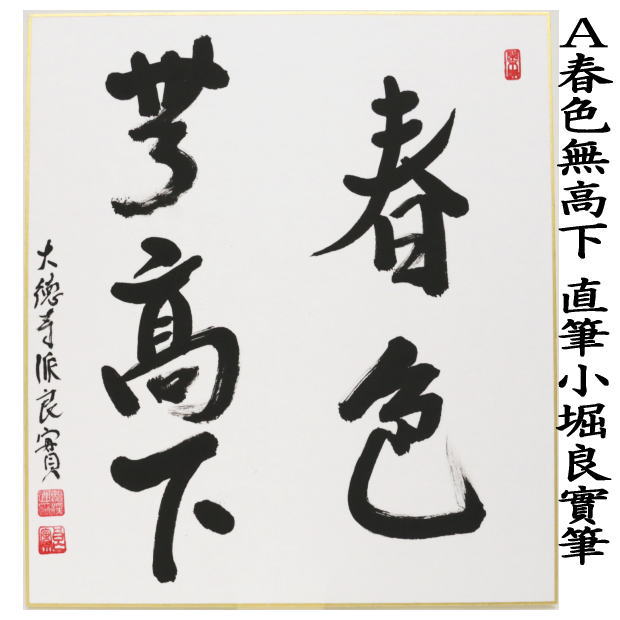 A春色無高下 直筆小堀良實筆
春色
無高下
大徳寺派良實